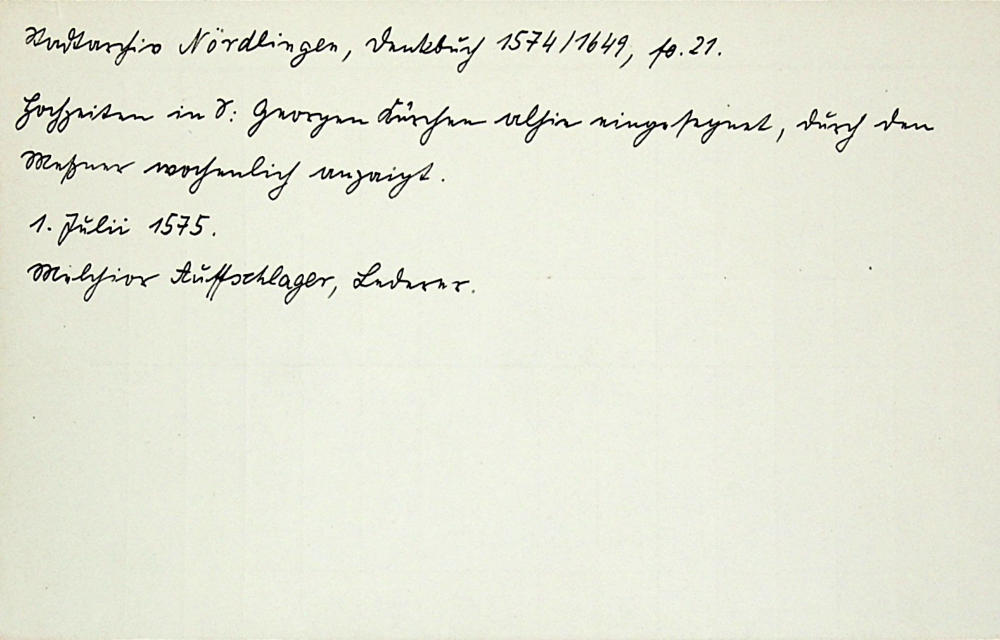 Stadtarchiv Nördlingen, Denkbuch 1574/1649, fo. 21.
Hochzeiten in S: Georgen Kürchen alhie eingesegnet, durch den
Meßner wochenlich anzaigt.
1. Julii 1575.
Melchior Auffschlager, Lederer.